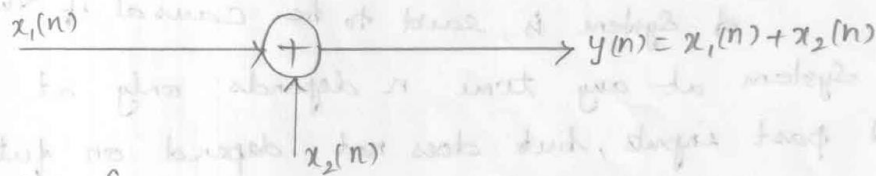 x₁(n)
+ y(n) = x₁(n) + x₂(n)
x₂(n)